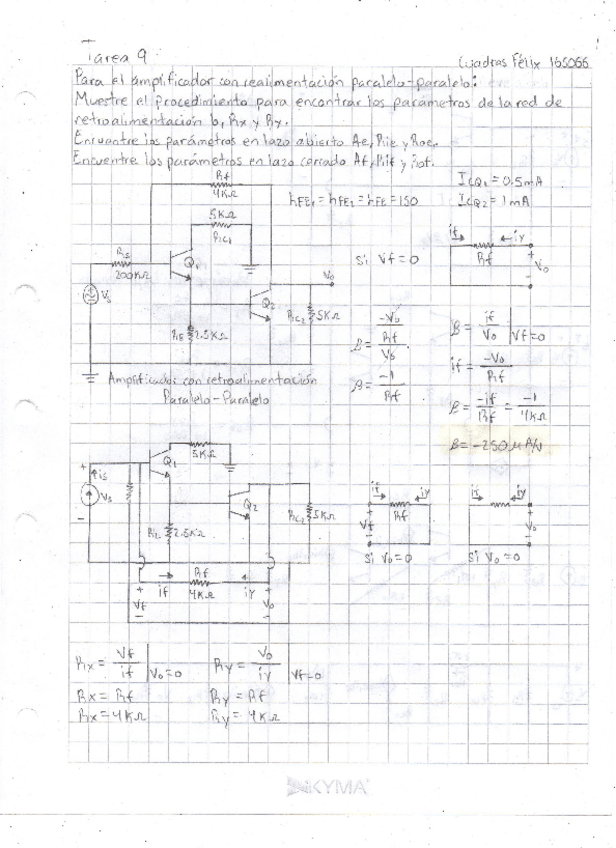 Tarea 9
Cuadras Félix 165066
Para el amplificador con realimentación paralelo-paralelo:
Muestre el procedimiento para encontrar los parámetros de la red de
retroalimentación b, Rx y Ry.
Encuentre los parámetros en lazo abierto Ae, Rie y Roe.
Encuentre los parámetros en lazo cerrado Af, Rif y Rof.
Rf
4KΩ
5KΩ
RC1
hFE1 = hFE2 = hFE = 150
ICQ1 = 0.5mA
ICQ2 = 1mA
Ris
200KΩ
Q1
Vs
Q2
Vo
RC2 5KΩ
2.5KΩ
Si Vf=0
if
iy
Rf
+
Vo
-
β = (-Vo/Rf)/Vo
β = -1/Rf
β = if/Vo | Vf=0
if = -Vo/Rf
β = -if/Rf = -1/4KΩ
β = -250 μA/V
Amplificador con retroalimentación
Paralelo-Paralelo
+
is
Vs
-
Q1
5KΩ
Q2
2.5KΩ
RC2 5KΩ
Rf
4KΩ
if
iy
+
Vf
-
+
Vo
-
if
iy
Rf
+
Vf
-
Si Vo=0
if
iy
+
Vo
-
Si Vo=0
Rx = Vf/if | Vo=0
Rx = Rf
Rx = 4KΩ
Ry = Vo/iy | Vf=0
Ry = Rf
Ry = 4KΩ
KYMA